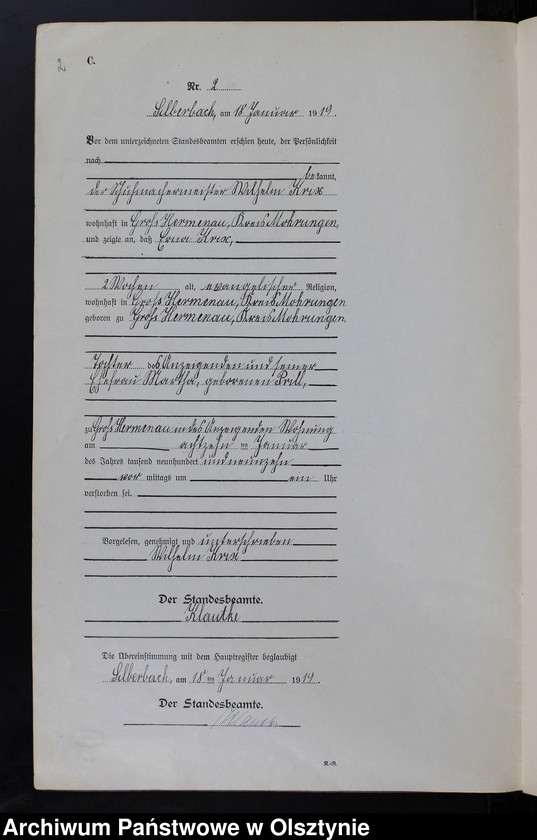 2
C.
Nr. 2
Silberbach, am 18 Januar 1919.
Vor dem unterzeichneten Standesbeamten erschien heute, der Persönlichkeit
nach
bekannt,
der Schuhmachermeister Wilhelm Krix
wohnhaft in Groß Hermenau, Kreis Mohrungen,
und zeigte an, daß Erna Krix,
2 Wochen alt, evangelischer Religion,
wohnhaft in Groß Hermenau, Kreis Mohrungen
geboren zu Groß Hermenau, Kreis Mohrungen
Tochter des Anzeigenden und seiner
Ehefrau Martha, geborenen
zu Groß Hermenau in des Anzeigenden Wohnung
am achtzehn ten Januar
des Jahres tausend neunhundert undneunzehn
vor mittags um ein Uhr
verstorben sei.
Vorgelesen, genehmigt und unterschrieben
Wilhelm Krix
Der Standesbeamte.
Klautke
Die Übereinstimmung mit dem Hauptregister beglaubigt
Silberbach, am 18 ten Januar 1919.
Der Standesbeamte.
R.-R.
Archiwum Państwowe w Olsztynie